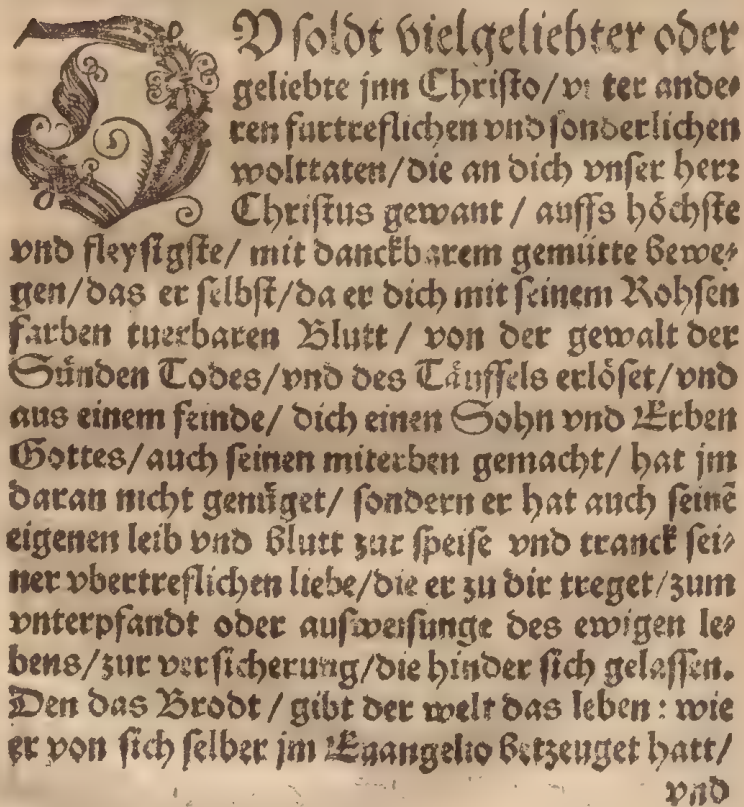 DV soldt vielgeliebter oder
geliebte jnn Christo/ vnter ande⸗
ren furtreflichen vnd sonderlichen
wolttaten/ die an dich vnser herr
Christus gewant / auffs höchste
vnd fleysigste/ mit danckbarem gemütte bewe⸗
gen/ das er selbst/ da er dich mit seinem Rohsen
farben tuerbaren Blutt / von der gewalt der
Sünden Todes/ vnd des Täuffels erlöset/ vnd
aus einem feinde/ dich einen Sohn vnd Erben
Gottes/ auch seinen miterben gemacht/ hat jm
daran nicht genüget/ sondern er hat auch seinē
eigenen leib vnd Blutt zur speise vnd tranck sei⸗
ner vbertreflichen liebe/ die er zu dir treget/ zum
vnterpfandt oder aufweisunge des ewigen le⸗
bens/ zur versicherung/ die hinder sich gelassen.
Den das Brodt / gibt der welt das leben : wie
er von sich selber jm Euangelio betzeuget hatt/
vnd